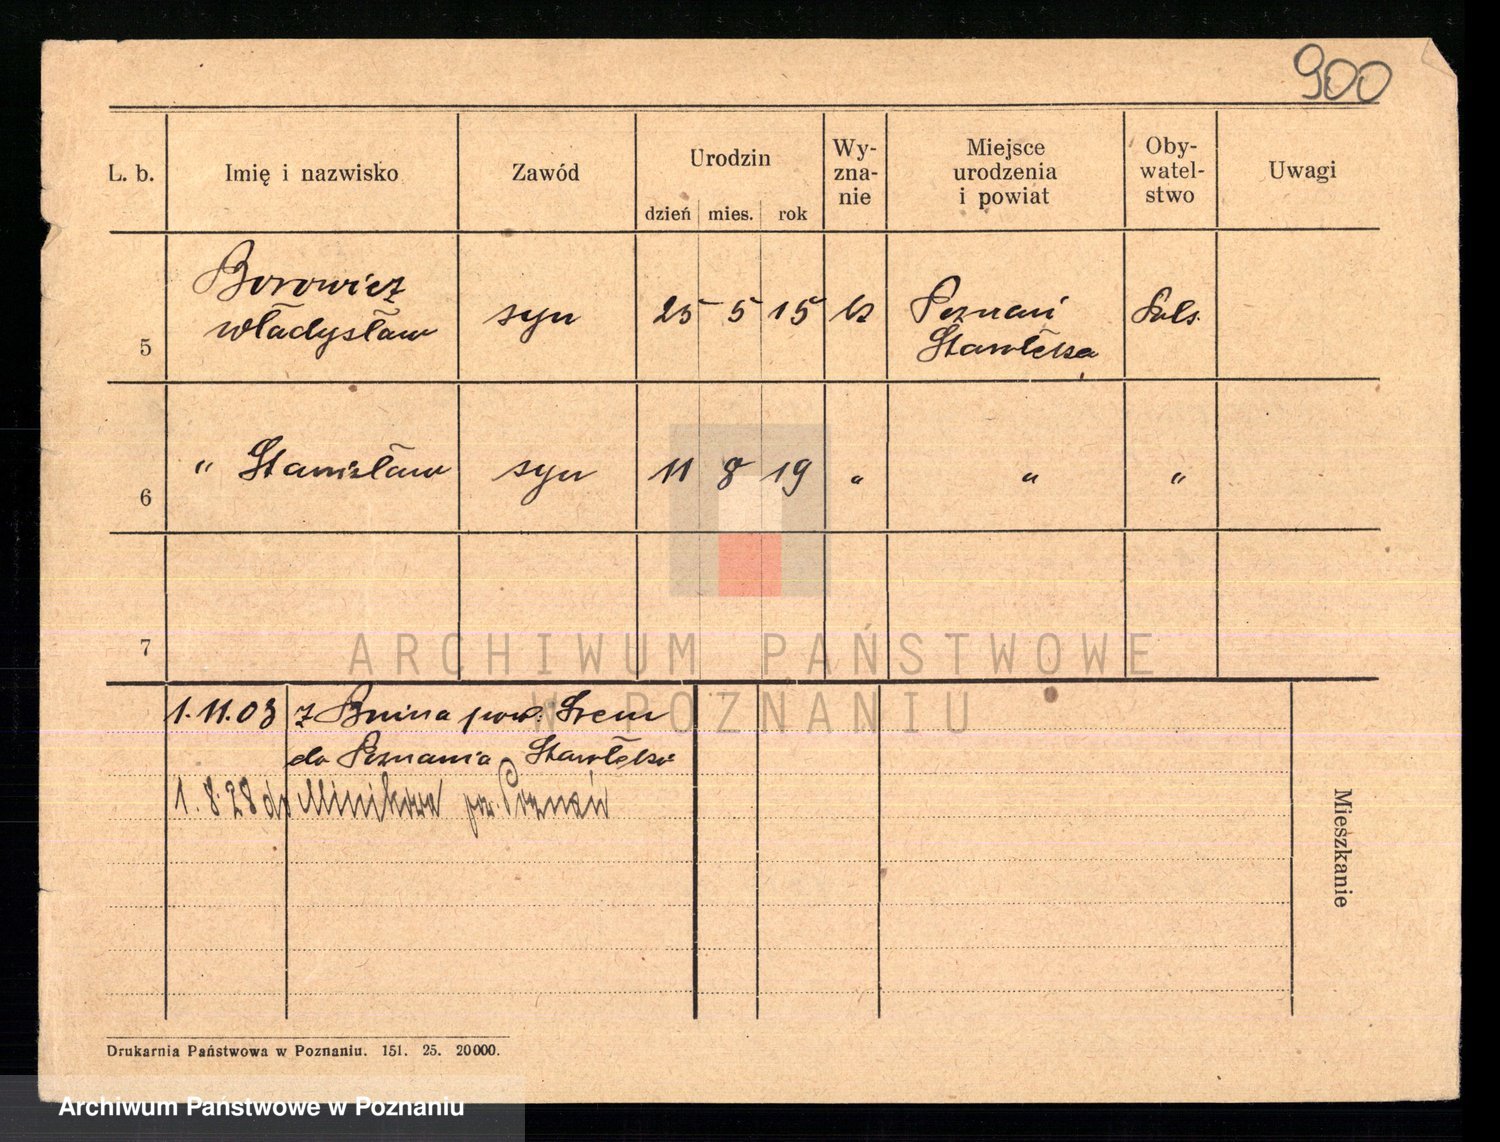 900
L. b. Imię i nazwisko Zawód Urodzin dzień mies. rok Wy-zna-nie Miejsce urodzenia i powiat Oby-watel-stwo Uwagi
5 Borowicz Władysław syn 25 5 15 kt Poznań Starołęka Pols.
6 " Stanisław syn 11 8 19 " " "
7
1.11.03 z Bnina pow. Śrem
do Poznania Starołęka
1.8.28 do Minikowa pow. Poznań
Mieszkanie
Drukarnia Państwowa w Poznaniu. 151. 25. 20000.
ARCHIWUM PAŃSTWOWE
W POZNANIU
Archiwum Państwowe w Poznaniu